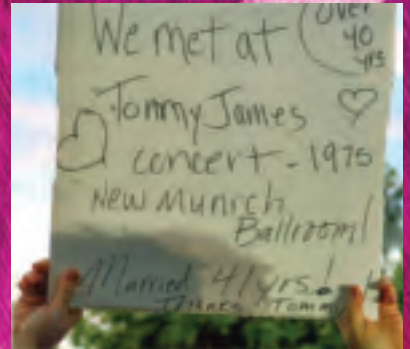 We met at
Over
40
yrs
Tommy James
concert - 1975
New Munich
Ballroom!
Married 41 yrs!
Tommy